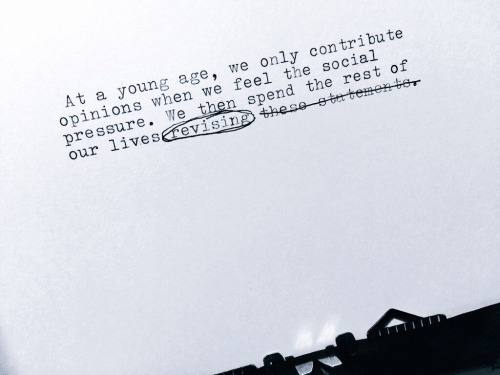 At a young age, we only contribute
opinions when we feel the social
pressure. We then spend the rest of
our lives revising these statements.